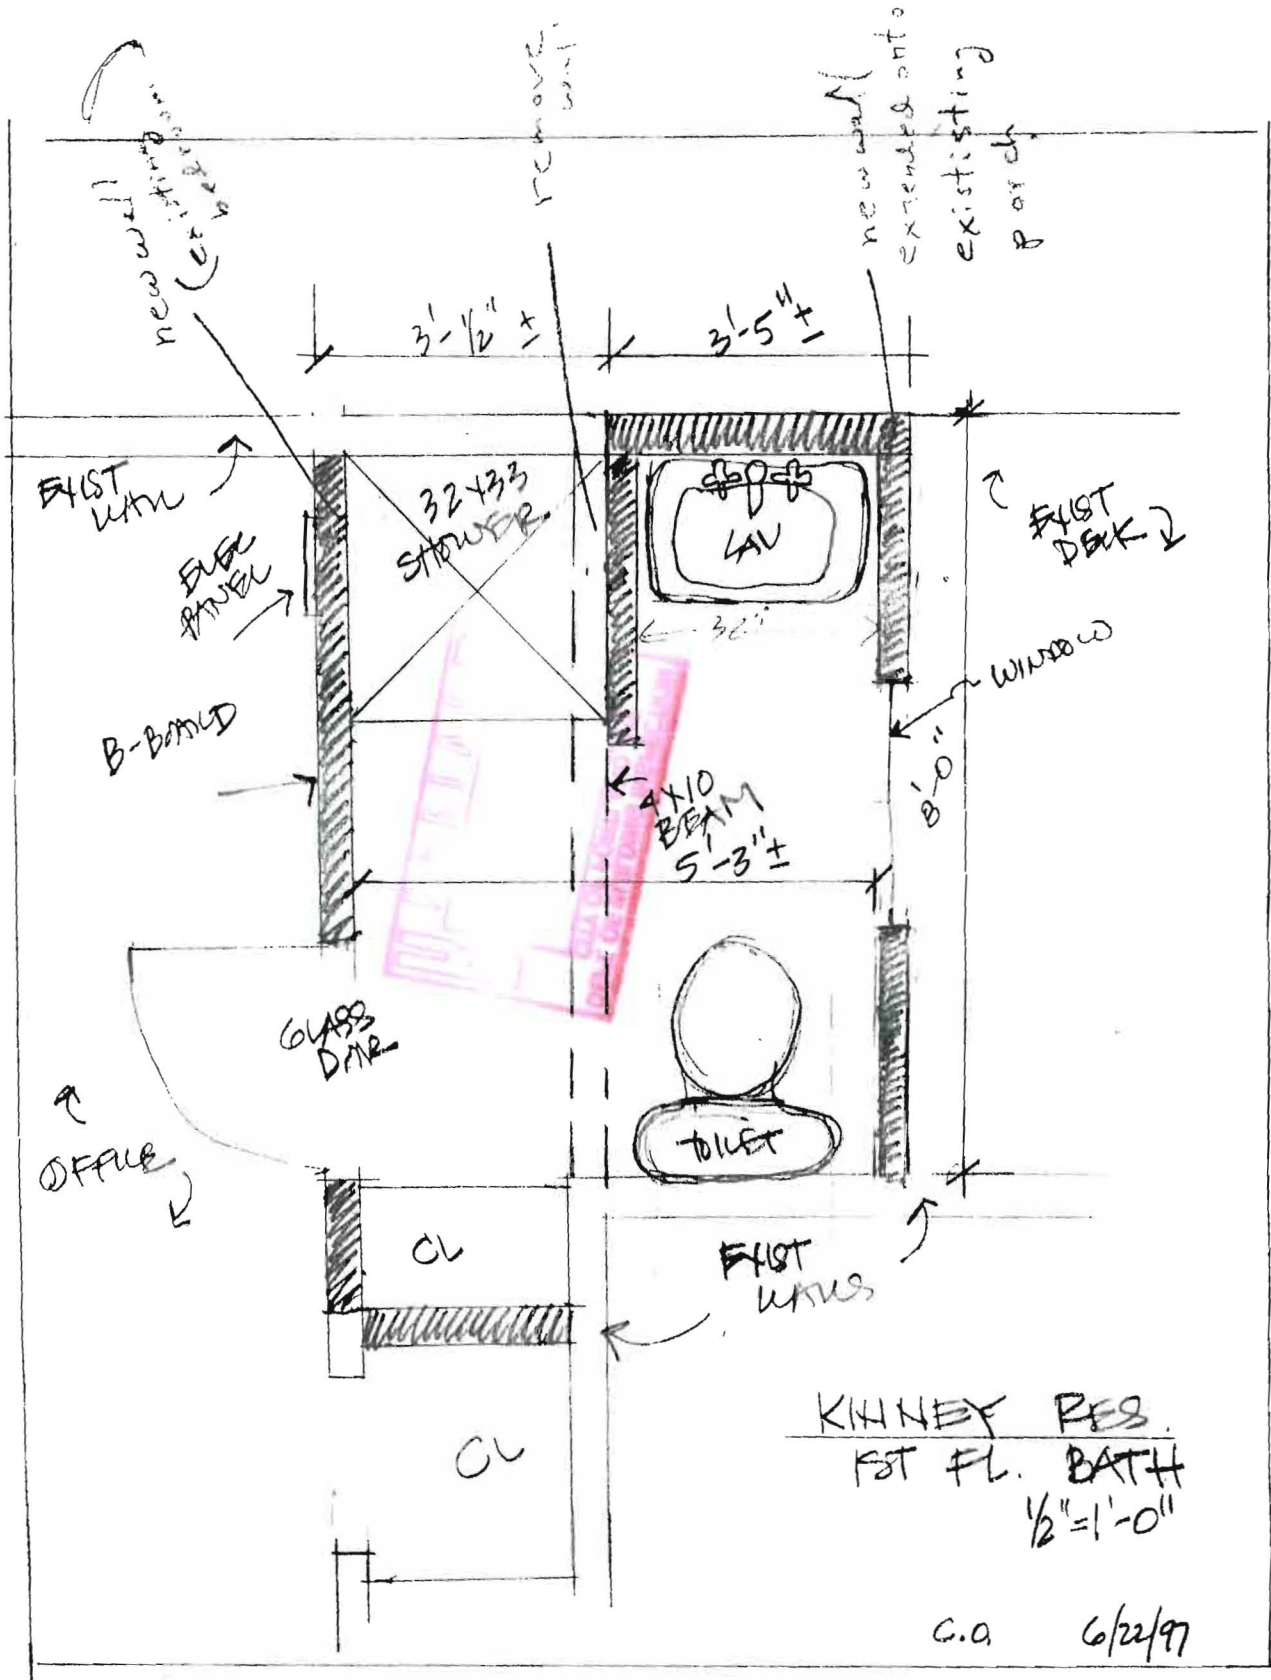 new wall
(existing
remove
wall
new wall
extended onto
exististing
porch
3'-1/2" ±
3'-5" ±
EXIST
WALL
ELEC
PANEL
32X33
SHOWER
LAV
32"
EXIST
DECK
WINDOW
B-BOARD
8'-0"
4X10
BEAM
5'-3" ±
GLASS
DOOR
OFFICE
TOILET
CL
EXIST
WALLS
CL
KINNEY RES.
1ST FL. BATH
1/2"=1'-0"
6/22/97